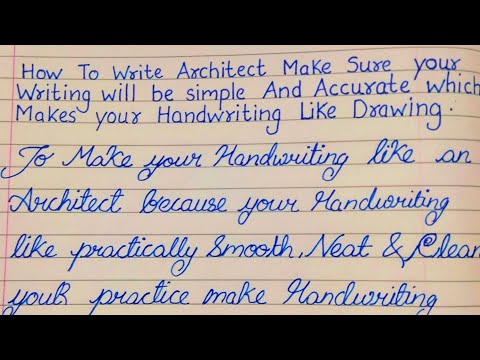 How To Write Architect Make Sure your
Writing will be simple And Accurate which
Makes your Handwriting Like Drawing.
To Make your Handwriting like an
Architect because your Handwriting
like practically Smooth, Neat & Clean
youR practice make Handwriting